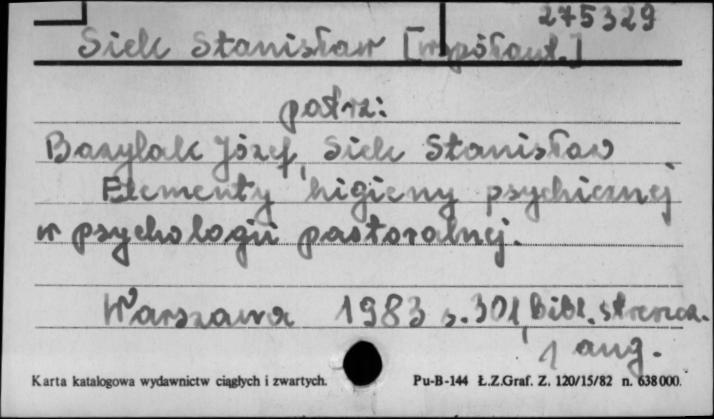 275329
Siek Stanisław [współaut.]
patrz:
Bazylak Józef, Siek Stanisław
Elementy higieny psychicznej
w psychologii pastoralnej.
Warszawa 1983 s. 301, Bibl. streszcz.
ang.
Karta katalogowa wydawnictw ciągłych i zwartych. Pu-B-144 Ł.Z.Graf. Z. 120/15/82 n. 638000.